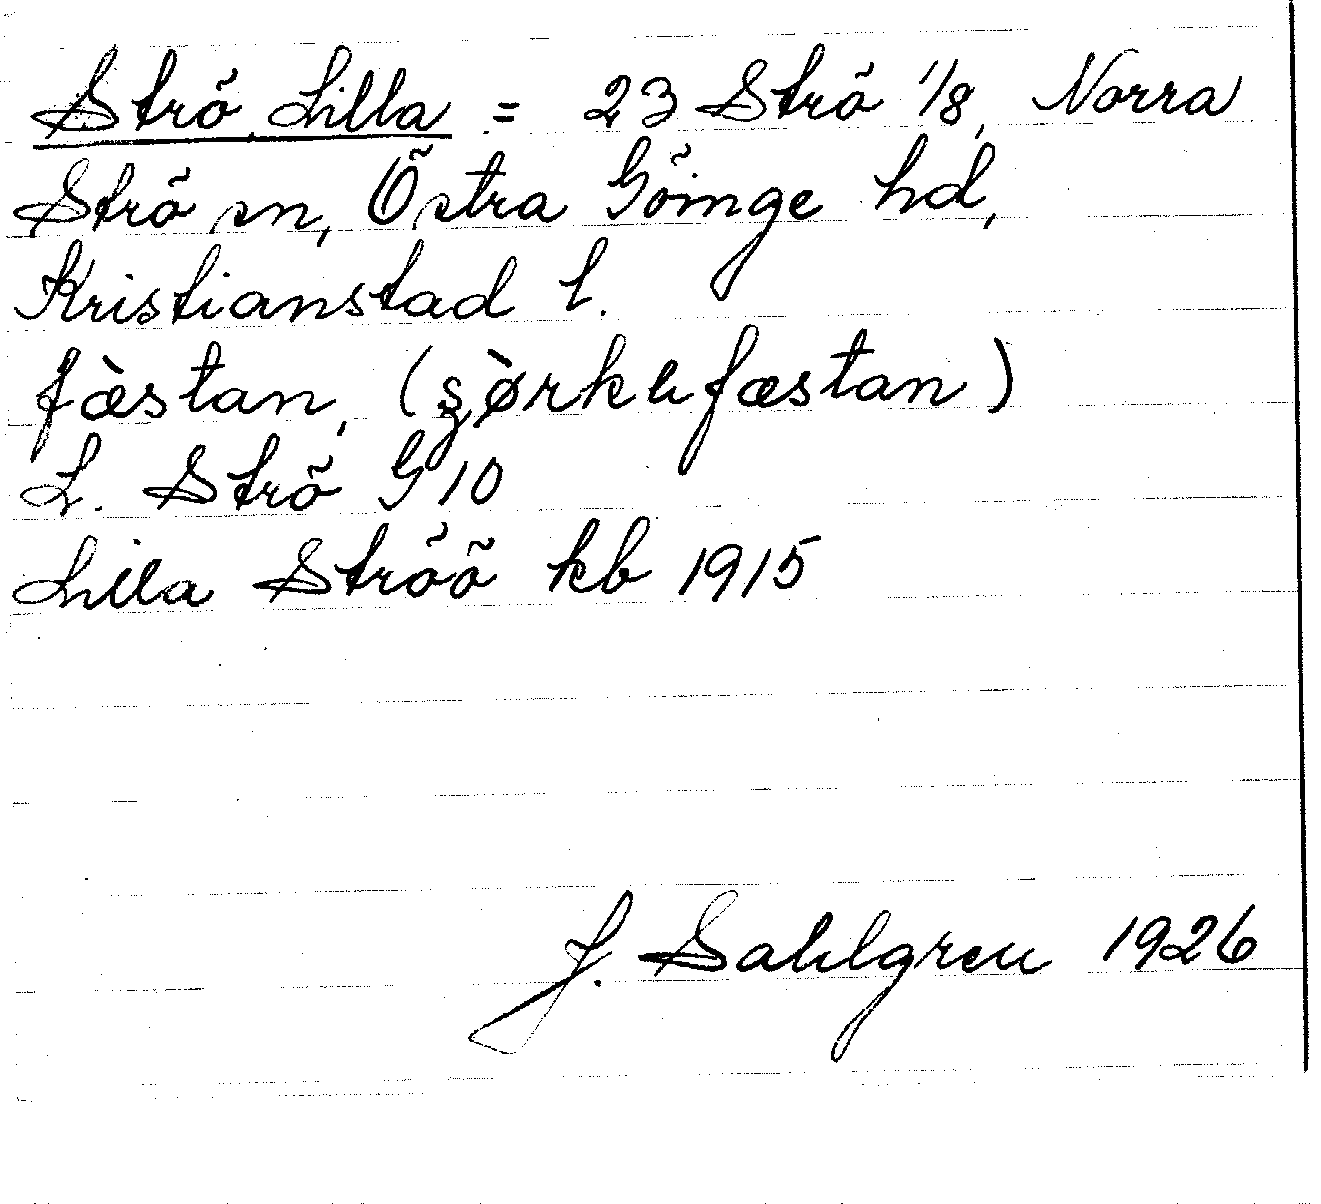 Strö, Lilla = 23 Strö 1/8, Norra
Strö sn, Östra Göinge hd,
Kristianstad l.
fæ̀stan, (
L. Strö G 10
Lilla Ströö kb 1915
J. Sahlgren 1926